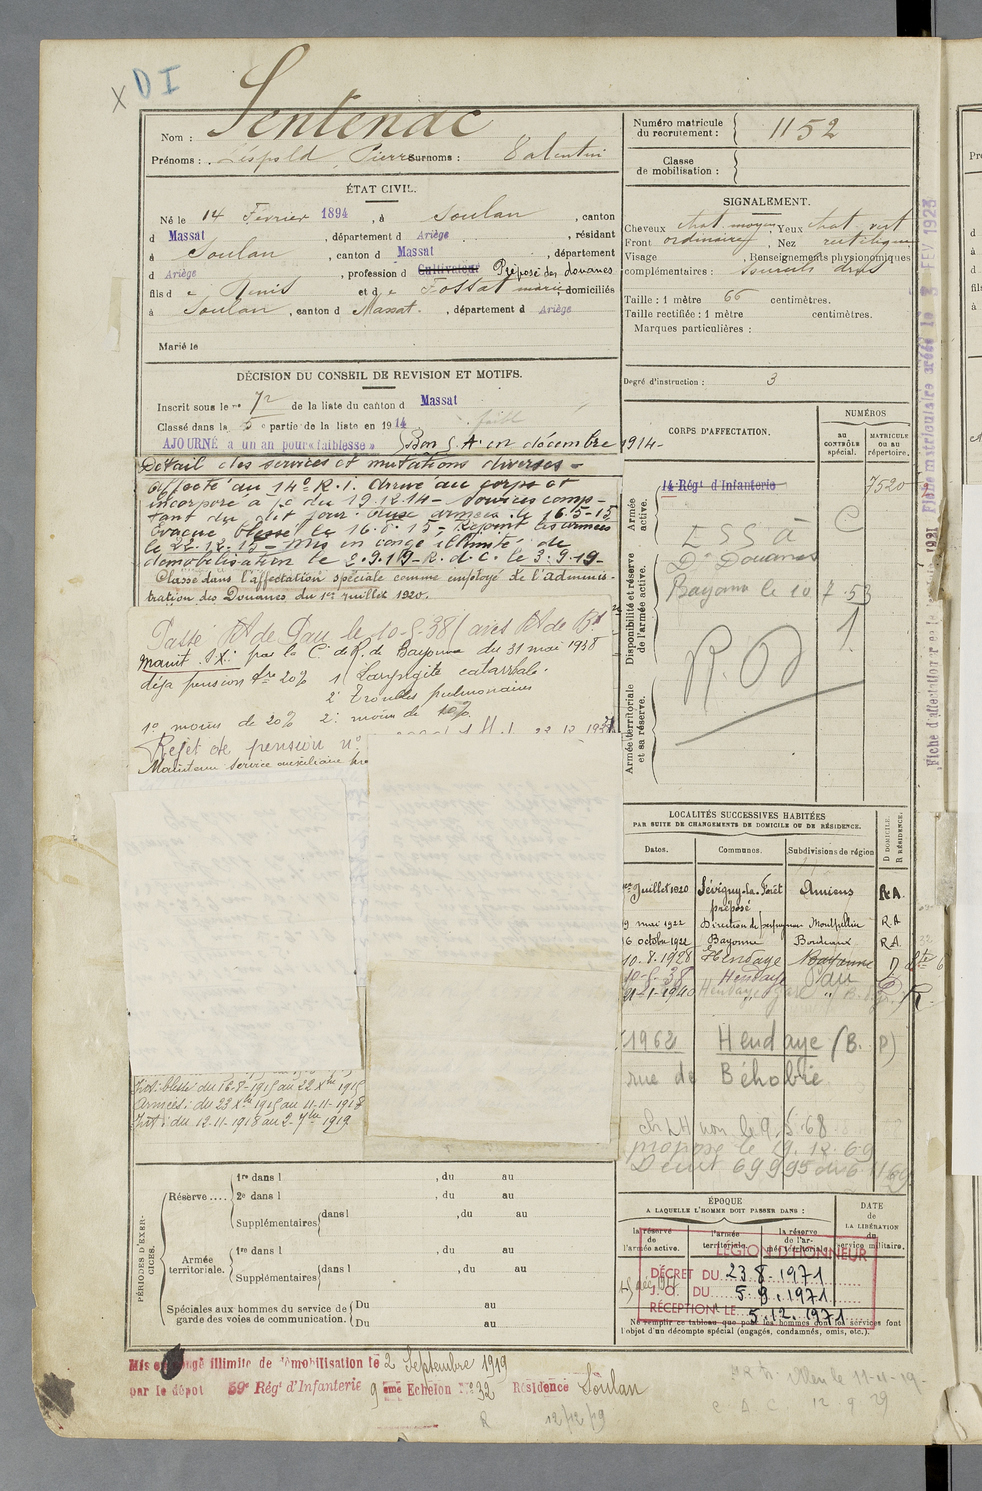 X D I
Nom : Sentenac
Prénoms : Léopold Pierre Surnoms : Valentin
Numéro matricule du recrutement : 1152
Classe de mobilisation :
ÉTAT CIVIL.
Né le 14 Fevrier 1894, à Soulan, canton
d Massat, département d Ariège, résidant
à Soulan, canton d Massat, département
d Ariège, profession d Cultivateur Préposé des douanes
fils d e Denis et d e Fossat marie domiciliés
à Soulan, canton d Massat, département d Ariège
Marié le
SIGNALEMENT.
Cheveux chat. moyen Yeux chat. vert
Front ordinaire, Nez rectiligne
Visage , Renseignements physionomiques
complémentaires : Sourcils droits
Taille : 1 mètre 66 centimètres.
Taille rectifiée : 1 mètre centimètres.
Marques particulières :
Degré d'instruction : 3
DÉCISION DU CONSEIL DE REVISION ET MOTIFS.
Inscrit sous le n° 72 de la liste du canton d Massat
Classé dans la 5 e partie de la liste en 1914
AJOURNÉ à un an pour « faiblesse » Bon S. A. en décembre 1914-
Détail des services et mutations diverses -
Affecté au 14e R.I. Arrivé au corps et
incorporé à /c du 19.12.14 - Services comp-
tant du dit jour. Aux armées le 16.5-15
Evacué blessé le 16.8.15 - Rejoint les armées
le 22.12.15 - Mis en congé illimité de
démobilisation le 2.9.19 - R.d.C. le 3.9.19-
Classé dans l'affectation spéciale comme employé de l'adminis-
tration des Douanes du 1er juillet 1920.
Passé RA de Pau le 10-5-38
Maint. S.X. par la C. de R. de Bayonne du 31 mai 1938
déja pension 20% 1° Laryngite catarrhale.
2° Troubles pulmonaires
1° moins de 20% 2° moins de 10%
Rejet de pension n°
Maintenu service auxiliaire
Int. blessé du 16-8-1915 au 22 Xbre 1915
Armées : du 23 Xbre 1915 au 11-11-1918
Int : du 12-11-1918 au 2-7bre 1919
CORPS D'AFFECTATION.
NUMÉROS
au CONTRÔLE spécial.
MATRICULE ou au répertoire.
Armée active.
14 Régt d'Infanterie
7520
Disponibilité et réserve de l'armée active.
E S S A
Don Douanes
Bayonne le 10 7.53
R.D
Armée territoriale et sa réserve.
LOCALITÉS SUCCESSIVES HABITÉES
PAR SUITE DE CHANGEMENTS DE DOMICILE OU DE RÉSIDENCE.
Dates. Communes. Subdivisions de région D DOMICILE. R RÉSIDENCE.
1er Juillet 1920 Sévigny-la-Forêt Amiens R.A.
préposé
9 mai 1922 Direction de perpignan Montpellier R.A
6 octobre 1922 Bayonne Bordeaux R.A.
10-8-1928 Hendaye Bayonne D
10-5-38 Hendaye Pau
21-1-1940 Hendaye
1962 Hendaye (B. P)
rue de Béhobie
ch LH non le 9.5.68
proposé le 19.12.69
Decret
Réserve .... 1re dans l , du au
2e dans l , du au
Supplémentaires dans l , du au
PÉRIODES D'EXERCICES.
Armée territoriale. 1re dans l , du au
Supplémentaires dans l , du au
Spéciales aux hommes du service de garde des voies de communication.
Du au
Du au
ÉPOQUE
A LAQUELLE L'HOMME DOIT PASSER DANS :
la réserve de l'armée active.
l'armée territoriale.
la réserve de l'armée territoriale.
DATE de LA LIBÉRATION du service militaire.
LÉGION D'HONNEUR
DÉCRET DU 23.8.1971
J. O. DU 5.9.1971
RÉCEPTION LE 5.12.1971
Ne remplir ce tableau que pour les hommes dont les services font
l'objet d'un décompte spécial (engagés, condamnés, omis, etc.).
Mis en congé illimité de démobilisation le 2 Septembre 1919
par le dépot 59e Régt d'Infanterie 9 ème Echelon N° 32 Résidence Soulan
R 12/12/19